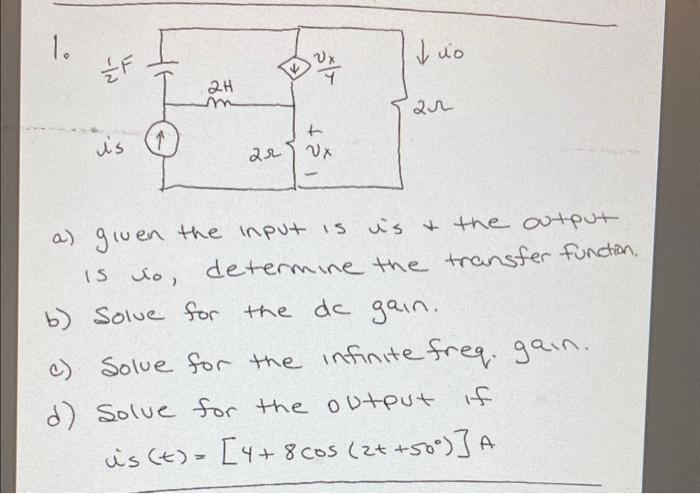 1.
½F
Vx/4
↓ io
2H
2Ω
is
2Ω
+
Vx
-
a) given the input is is + the output
is io, determine the transfer function.
b) Solve for the dc gain.
c) Solve for the infinite freq. gain.
d) Solve for the output if
is(t) = [4 + 8cos(2t+50°)] A